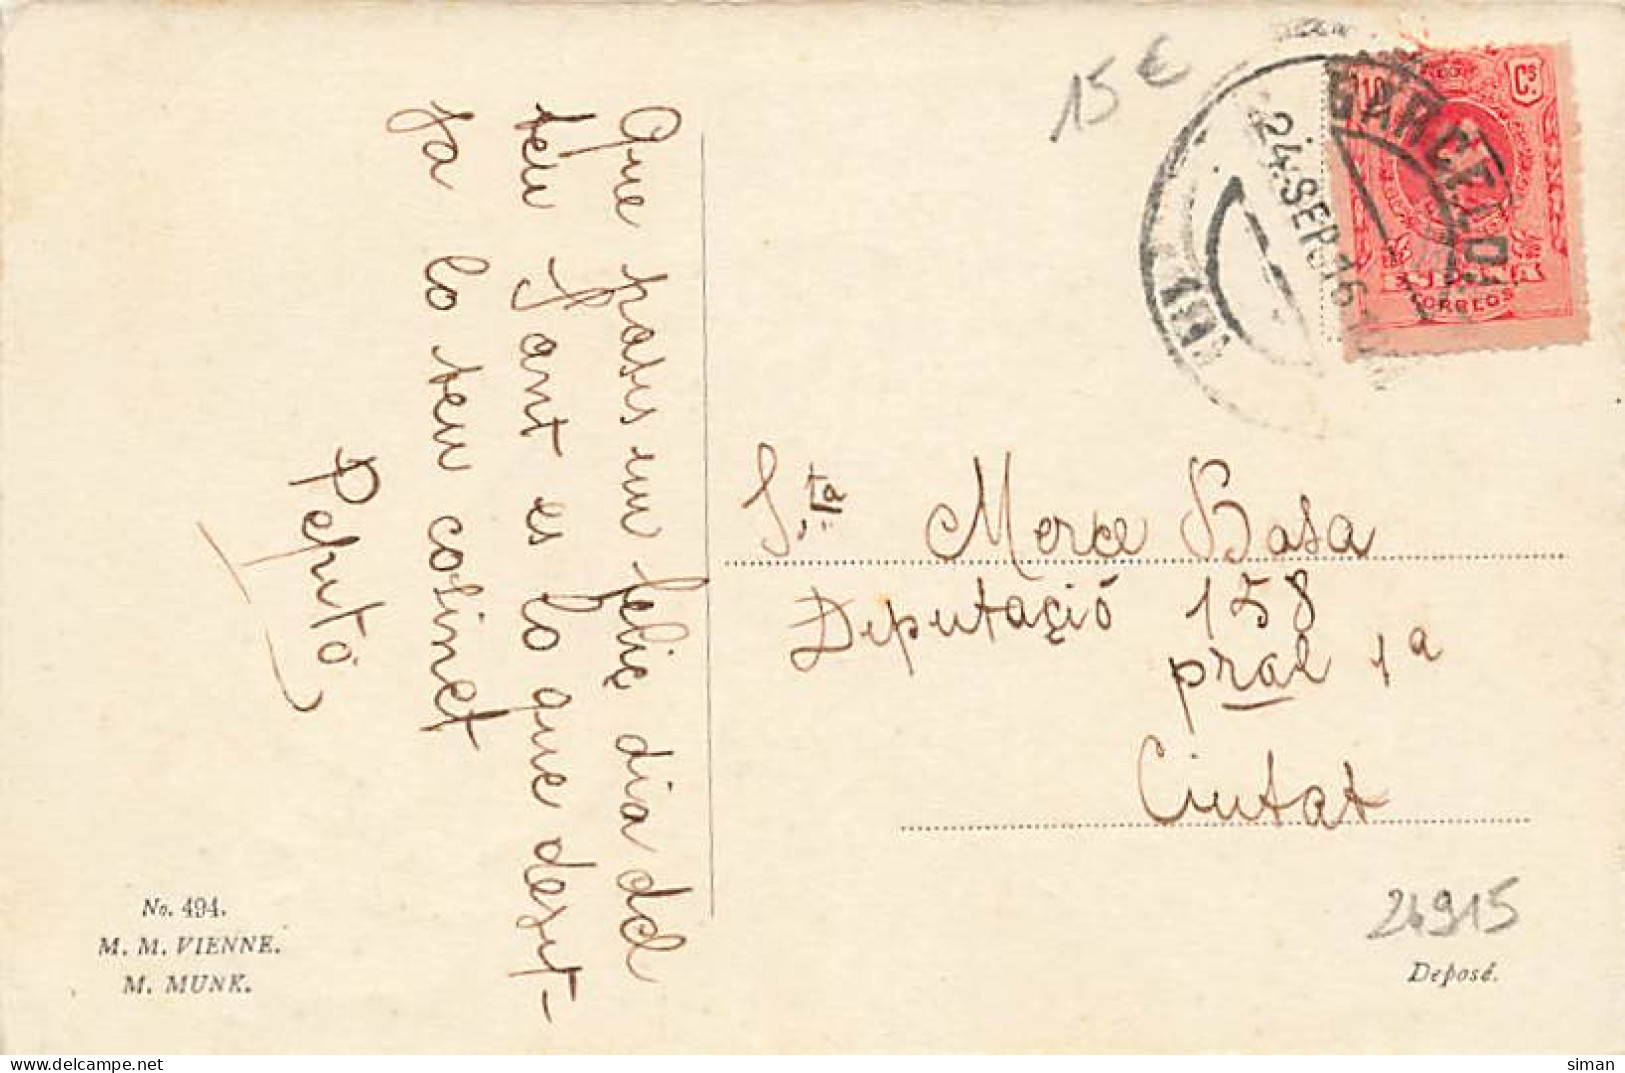 Que passis un felic dia del
teu Sant es lo que desit-
ja lo teu cosinet
Pepitó
15 €
10 Cs
CORREOS
BARCELONA
24.SEP.16
Sta Merce Basa
Deputaçió 158
pral 1a
Ciutat
24915
Deposé.
No. 494.
M. M. VIENNE.
M. MUNK.
siman